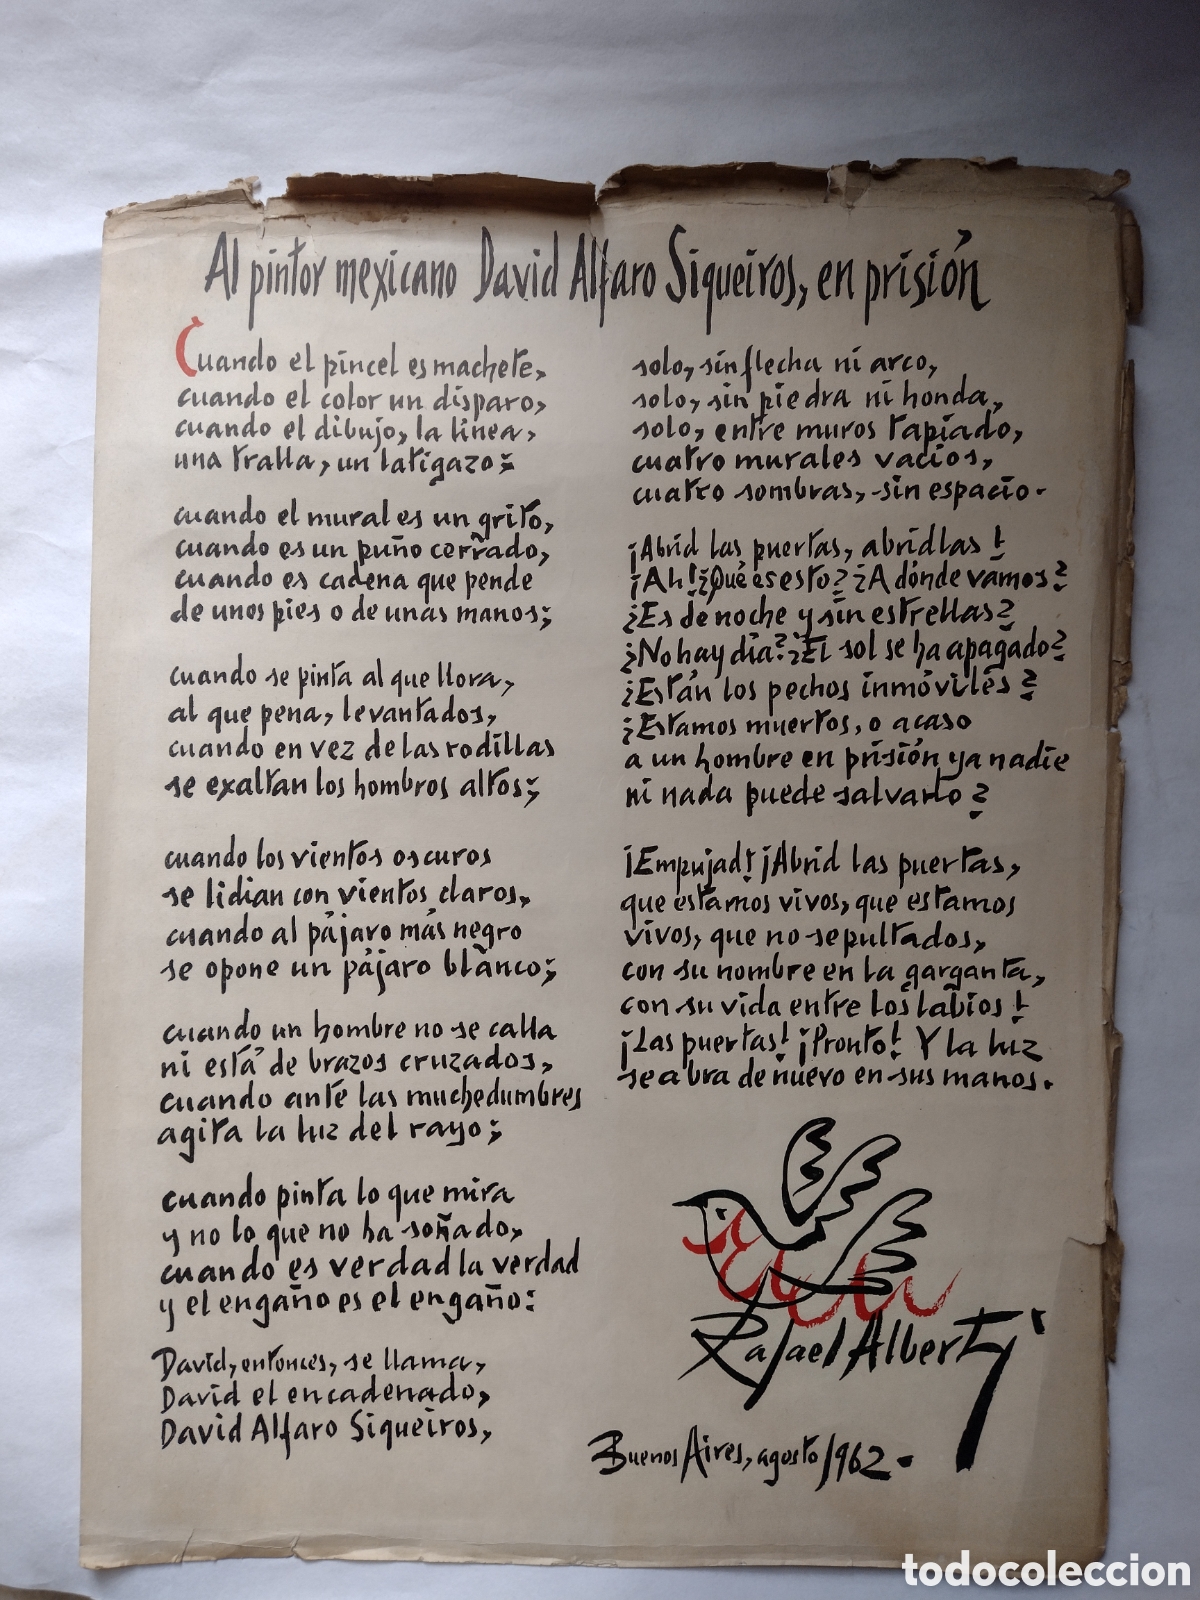 Al pintor mexicano David Alfaro Siqueiros, en prisión
Cuando el pincel es machete,
cuando el color un disparo,
cuando el dibujo, la línea,
una tralla, un latigazo;
cuando el mural es un grito,
cuando es un puño cerrado,
cuando es cadena que pende
de unos pies o de unas manos;
cuando se pinta al que llora,
al que pena, levantados,
cuando en vez de las rodillas
se exaltan los hombros altos;
cuando los vientos oscuros
se lidian con vientos claros,
cuando al pájaro más negro
se opone un pájaro blanco;
cuando un hombre no se calla
ni está de brazos cruzados,
cuando ante las muchedumbres
agita la luz del rayo;
cuando pinta lo que mira
y no lo que no ha soñado,
cuando es verdad la verdad
y el engaño es el engaño:
David, entonces, se llama,
David el encadenado,
David Alfaro Siqueiros,
solo, sin flecha ni arco,
solo, sin piedra ni honda,
solo, entre muros tapiado,
cuatro murales vacíos,
cuatro sombras, sin espacio.
¡Abrid las puertas, abridlas!
¡Ah! ¿Qué es esto? ¿A dónde vamos?
¿Es de noche y sin estrellas?
¿No hay día? ¿El sol se ha apagado?
¿Están los pechos inmóviles?
¿Estamos muertos, o acaso
a un hombre en prisión ya nadie
ni nada puede salvarlo?
¡Empujad! ¡Abrid las puertas,
que estamos vivos, que estamos
vivos, que no sepultados,
con su nombre en la garganta,
con su vida entre los labios!
¡Las puertas! ¡Pronto! Y la luz
se abra de nuevo en sus manos.
Rafael Alberti
Buenos Aires, agosto 1962.
todocoleccion